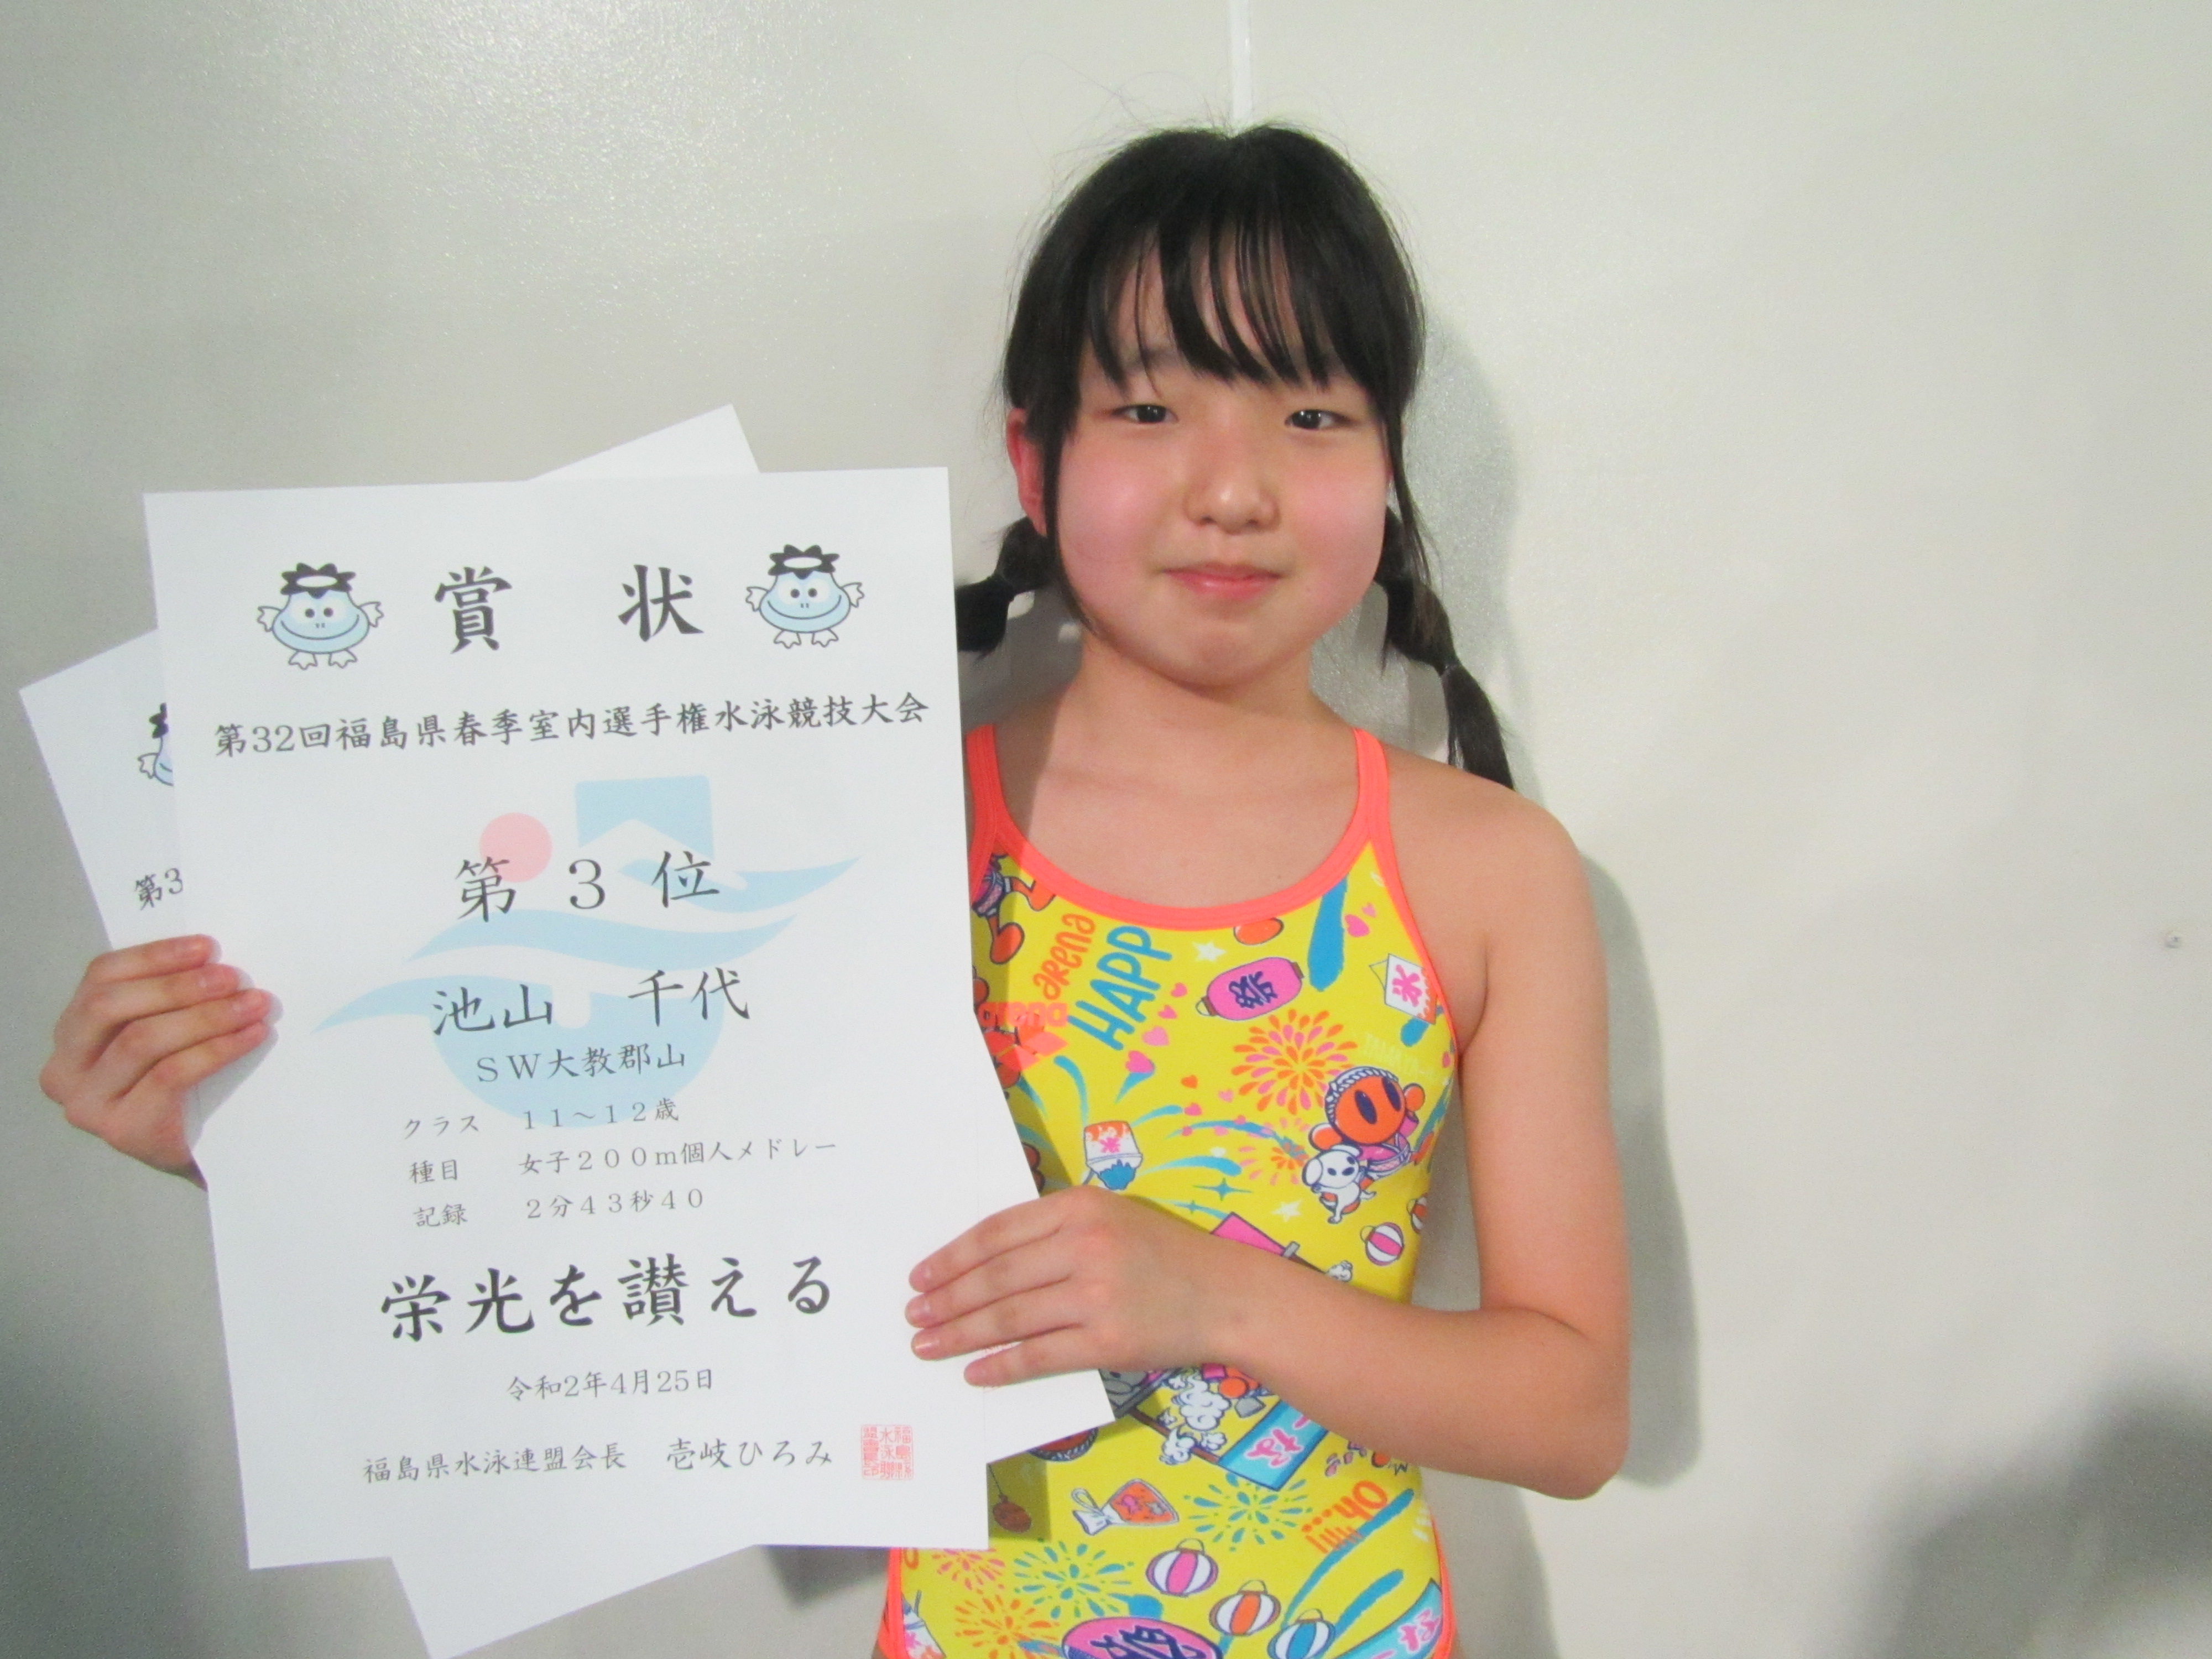 賞 状
第32回福島県春季室内選手権水泳競技大会
第 3 位
池山 千代
ＳＷ大教郡山
クラス １１～１２歳
種目 女子２００ｍ個人メドレー
記録 ２分４３秒４０
栄光を讃える
令和2年4月25日
福島県水泳連盟会長 壱岐ひろみ
第3
arena
HAPP
祭
氷
氷